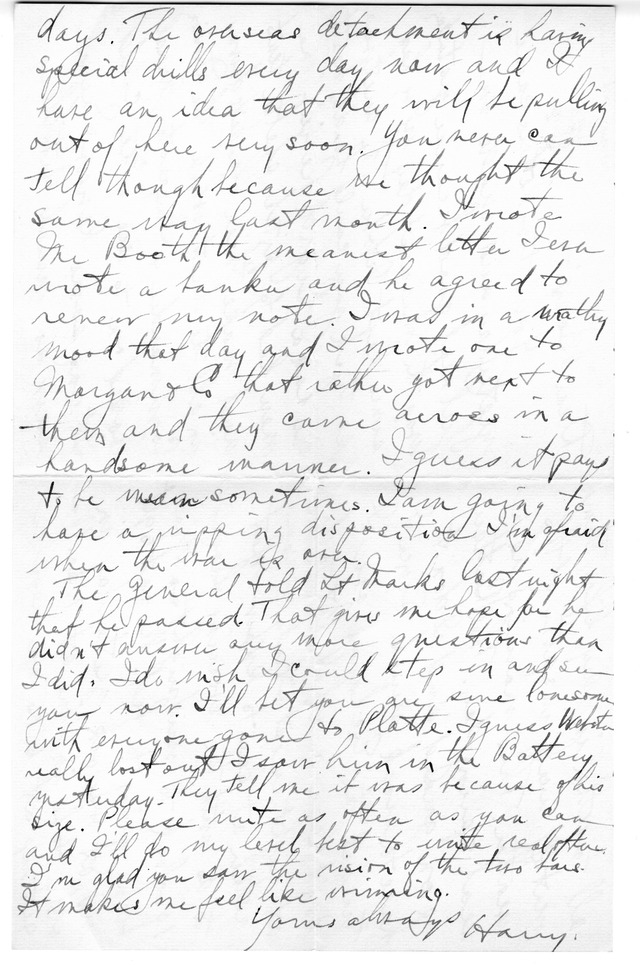 days. The overseas detachment is having
special drills every day now and I
have an idea that they will be pulling
out of here very soon. You never can
tell though because we thought the
same way last month. I wrote
Mr Booth the meanest letter I ever
wrote a banker and he agreed to
renew my note. I was in a wrathy
mood that day and I wrote one to
Morgan & Co that rather got next to
them and they came across in a
handsome manner. I guess it pays
to be mean sometimes. I am going to
have a ripping disposition I'm afraid
when the war is over.
The General told Lt Marks last night
that he passed. That gives me hope for he
didn't answer any more questions than
I did. I do wish I could step in and see
you now. I'll bet you are sure lonesome
with everyone gone to Platte. I guess Webster
really lost out I saw him in the Battery
yesterday. They tell me it was because of his
size. Please write as often as you can
and I'll do my level best to write real often.
I'm glad you saw the vision of the two bars.
It makes me feel like winning.
Yours always Harry.